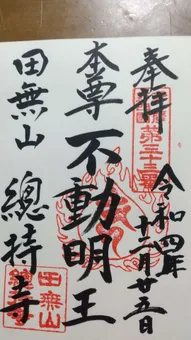 奉拝
第三十三番
令和四年
十二月廿五日
本尊 不動明王
田無山 總持寺
田無山